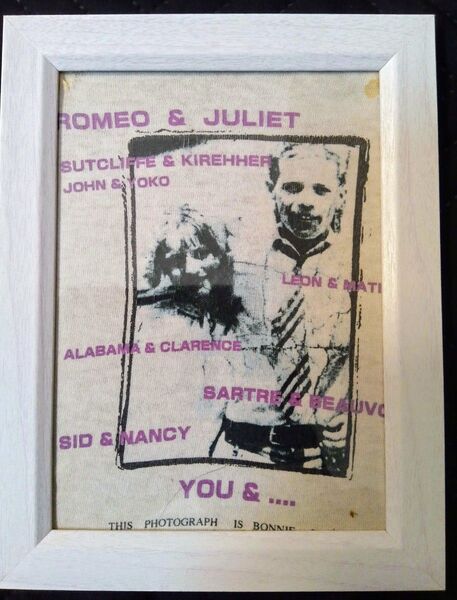 ROMEO & JULIET
SUTCLIFFE & KIREHHER
JOHN & YOKO
LEON & MATI
ALABAMA & CLARENCE
SARTRE & BEAUVO
SID & NANCY
YOU & ....
THIS PHOTOGRAPH IS BONNIE